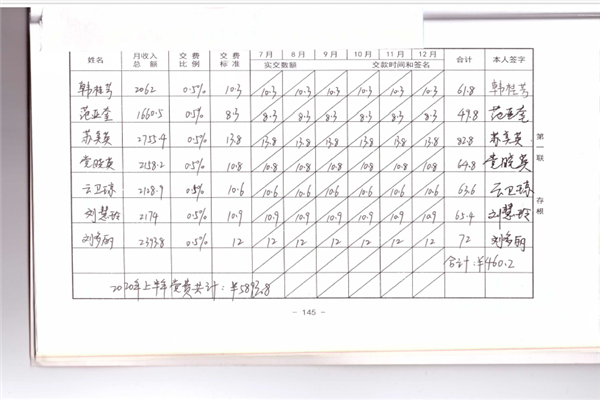 姓名 月收入总额 交费比例 交费标准 7月 8月 9月 10月 11月 12月 合计 本人签字
实交数额 交款时间和签名
韩桂芳 2062 0.5% 10.3 10.3 10.3 10.3 10.3 10.3 10.3 61.8 韩桂芳
范亚奎 1660.5 0.5% 8.3 8.3 8.3 8.3 8.3 8.3 8.3 49.8 范亚奎
苏美英 2755.4 0.5% 13.8 13.8 13.8 13.8 13.8 13.8 13.8 82.8 苏美英
党晓英 2158.2 0.5% 10.8 10.8 10.8 10.8 10.8 10.8 10.8 64.8 党晓英
云卫琼 2128.9 0.5% 10.6 10.6 10.6 10.6 10.6 10.6 10.6 63.6 云卫琼
刘慧玲 2174 0.5% 10.9 10.9 10.9 10.9 10.9 10.9 10.9 65.4 刘慧玲
刘秀丽 2393.8 0.5% 12 12 12 12 12 12 12 72 刘秀丽
合计:¥460.2
2020年上半年党费共计:¥5893.8
第一联 存根
- 145 -